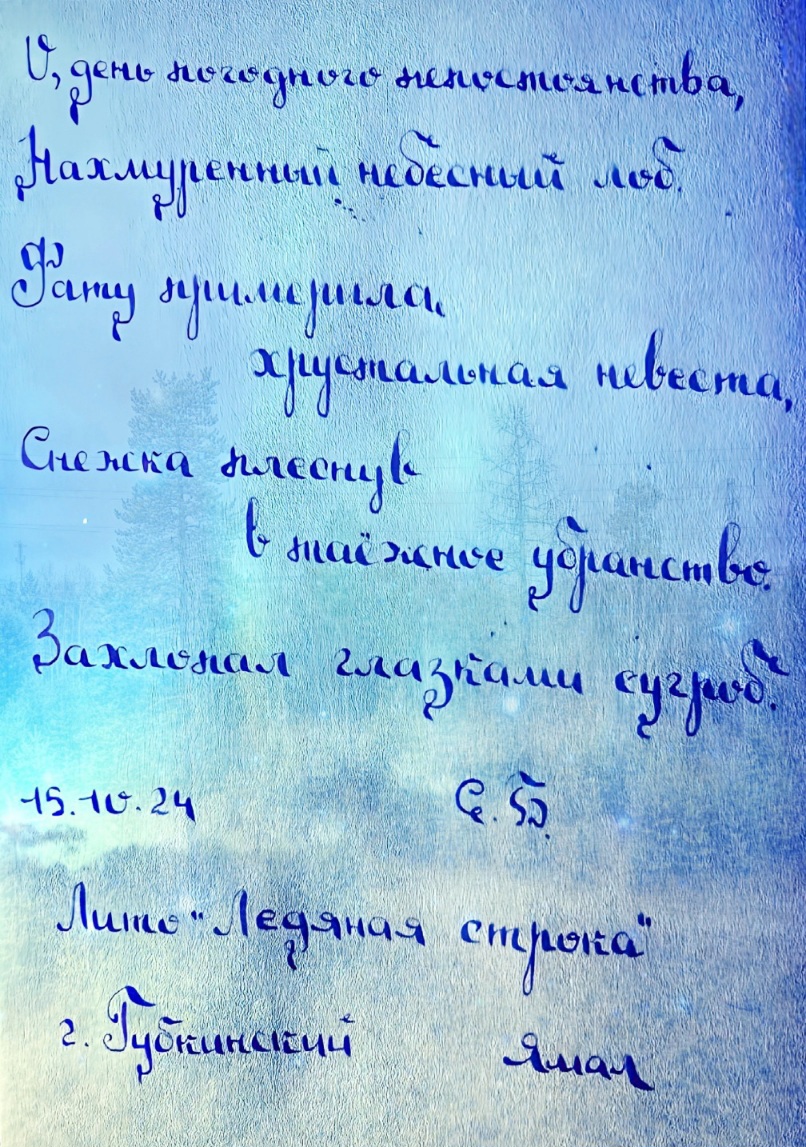 О, день погодного непостоянства,
Нахмуренный небесный лоб.
Фату примерила,
хрустальная невеста,
Снежка плеснув
в таёжное убранство.
Захлопал глазками сугроб.
15.10.24 С.Б.
Лито "Ледяная строка"
г. Губкинский Ямал